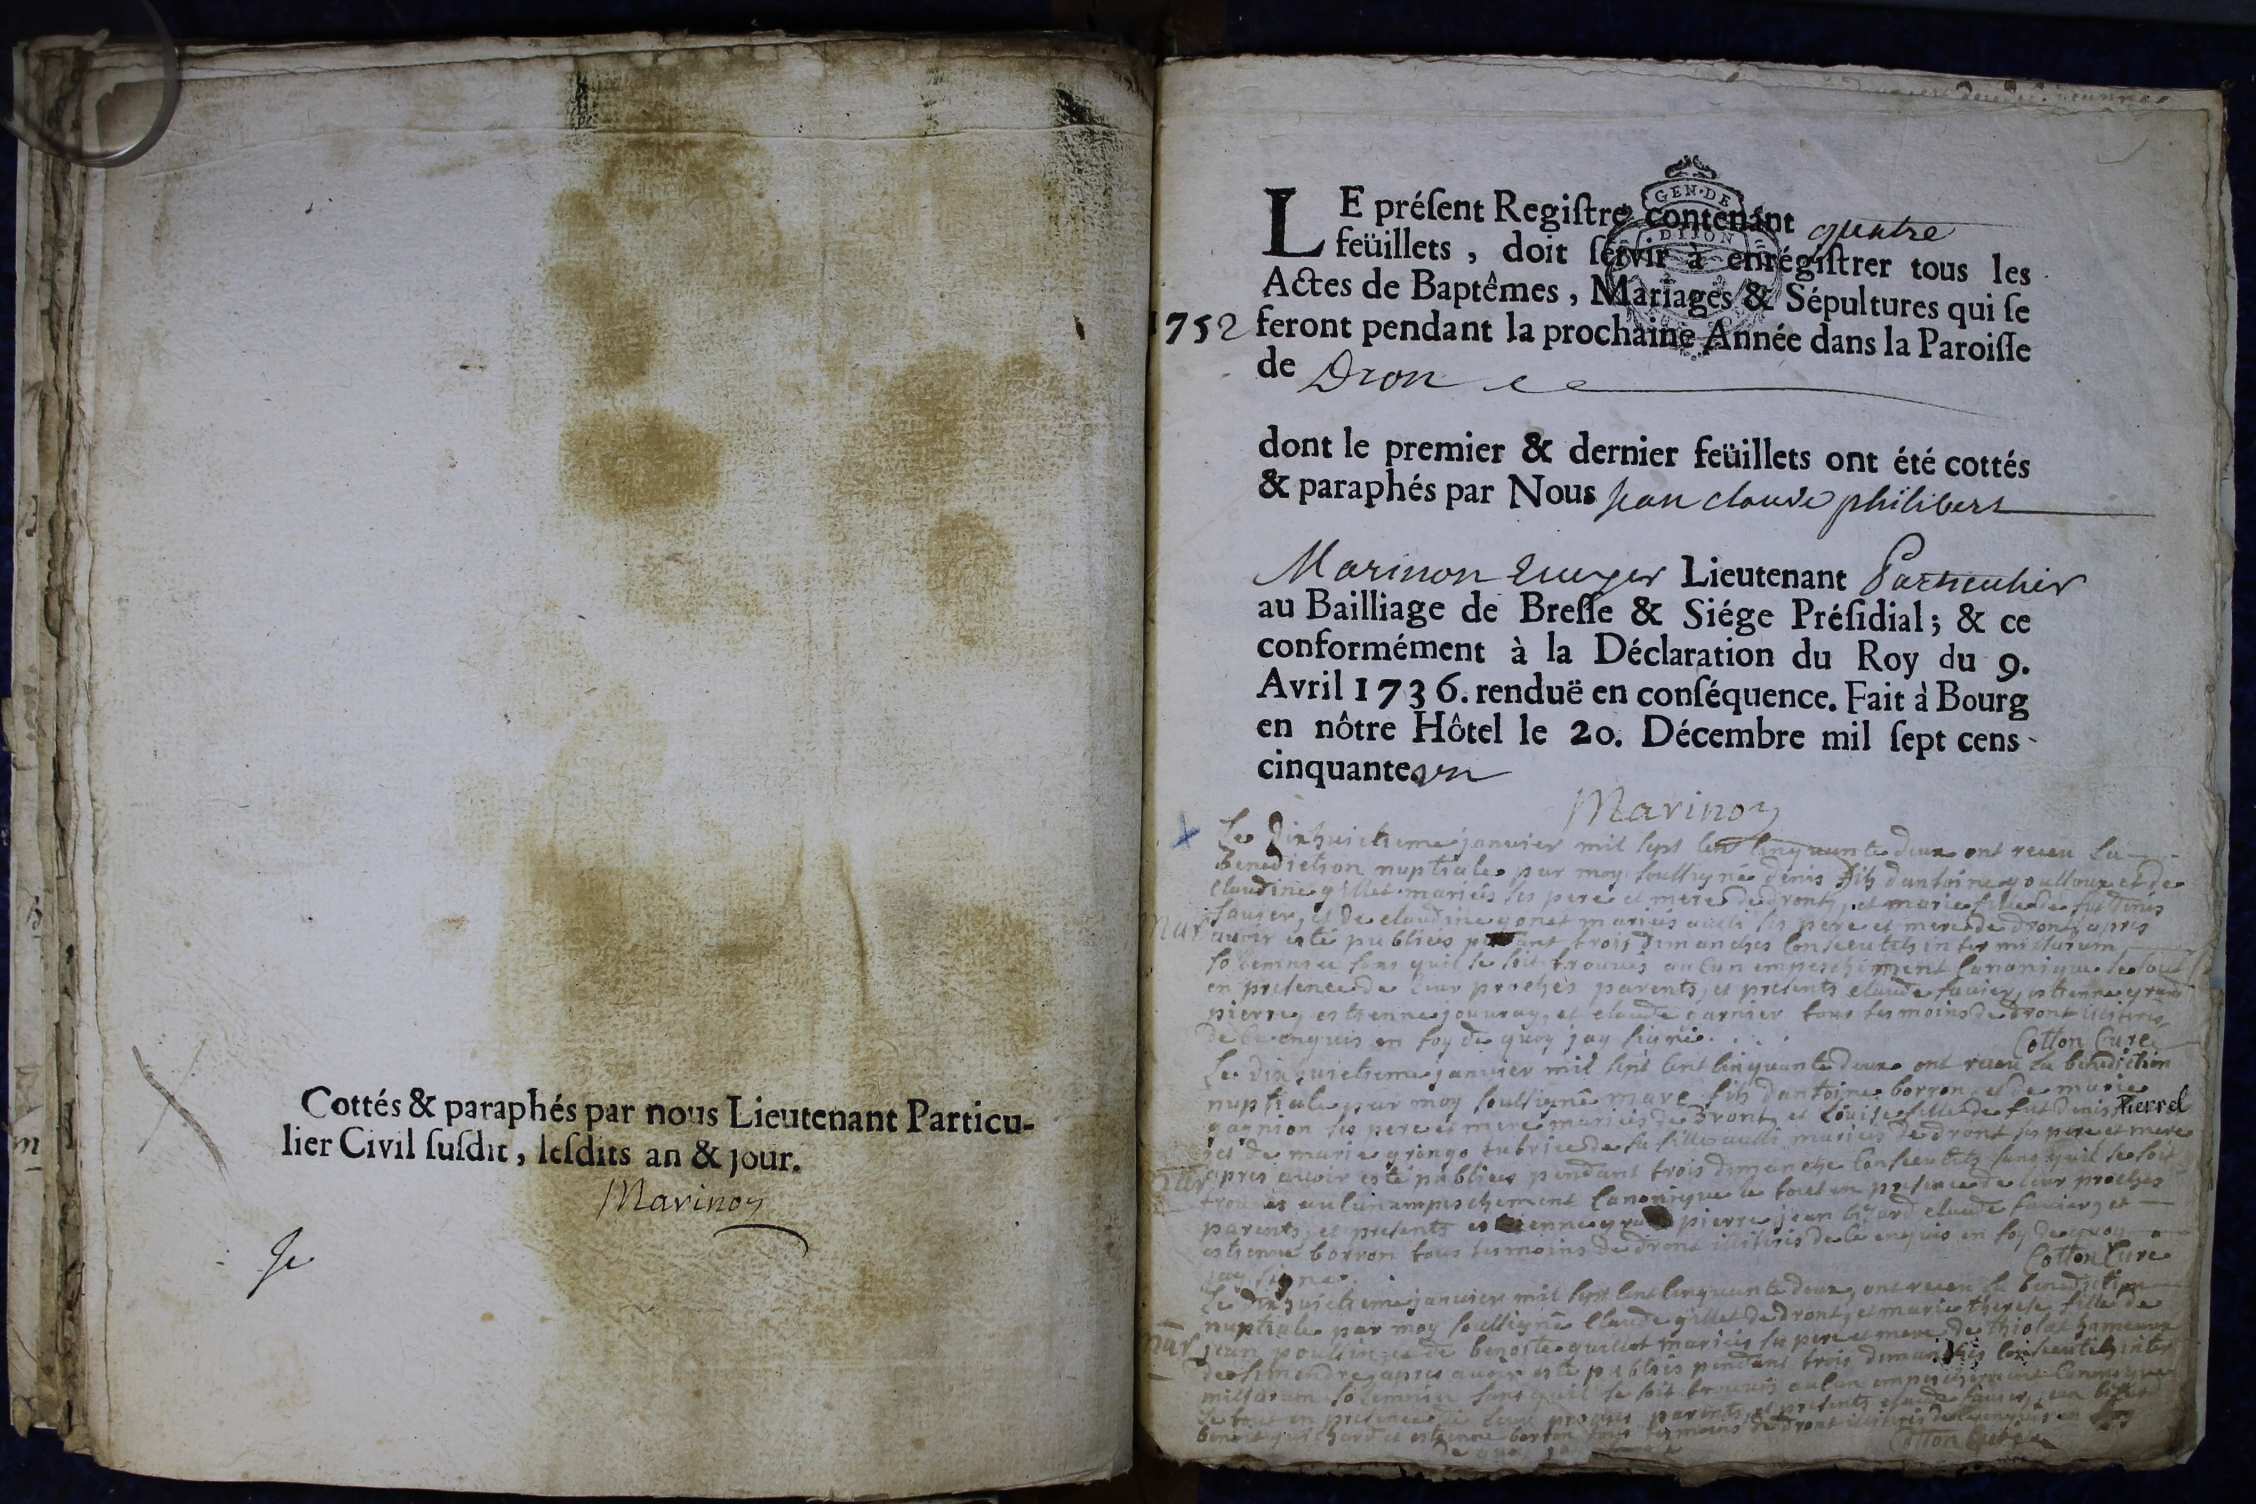 Cottés & paraphés par nous Lieutenant Particu-
lier Civil suſdit, leſdits an & jour.
Marinon
GEN·DE
DIJON
LE préſent Regiſtre contenant quatre
feüillets, doit ſervir à enrégiſtrer tous les
Actes de Baptêmes, Mariages & Sépultures qui ſe
1752 feront pendant la prochaine Année dans la Paroiſſe
de Dron
dont le premier & dernier feüillets ont été cottés
& paraphés par Nous Jean claude philibert
Marinon Lieutenant Particulier
au Bailliage de Breſſe & Siége Préſidial; & ce
conformément à la Déclaration du Roy du 9.
Avril 1736. renduë en conſéquence. Fait à Bourg
en nôtre Hôtel le 20. Décembre mil ſept cens
cinquante un
Marinon
Le Dixhuictieme janvier mil sept cent cinquante deux ont receu la
benediction nuptiale par moy soussigné denis fils dantoine et de
Claudine gillet mariés ses pere et mere de dront, et marie fille de fut denis
favier, et de claudine gonet mariés aussi ses pere et mere de dront, apres
Mar avoir esté publiées pendant trois dimanches consecutifs inter missarum
solemnia sans quil se soit trouvés aucun empeschement canonique le tout
en presence de leur proches parents, et presents claude favier, estienne grand
pierre, estienne jouvray, et claude carnier tous tesmoins de dront illitires
de ce enquis en foy de quoy jay signé.
Cotton Curé
Le dixhuictieme janvier mil sept cent cinquante deux ont receu la benediction
nuptiale par moy soussigné marc fils dantoine borron, et de marie
gagnion ses pere et mere mariés de dront, et Loüise fille de fut denis Pierrel
et de marie grongo aussi mariés de dront ses pere et mere
apres avoir esté publiées pendant trois dimanche consecutifs sans quil se soit
trouvés aucun empeschement canonique le tout en presence de leur proches
parents, et presents estienne grand pierre jean bizard claude favier, et
estienne borron tous tesmoins de dront illitires de ce enquis en foy de quoy
jay signé.
Cotton Curé
Le dixhuictieme janvier mil sept cent cinquante deux, ont receu la benediction
nuptiale par moy soussigné Claude gillet de dront, et marie therese fille de
mar jean poussin, et de benoite guillot mariés ses pere et mere de thiolet hameaux
de simandre, apres avoir esté publiés pendant trois dimanches consecutifs inter
missarum solemnia sans quil se soit trouvés aucun empeschement canonique
le tout en presence de leur proches parents, et presents claude favier, jean bizard
benoit guichard et estienne borron tous tesmoins de dront illitires de ce enquis en foy
de quoy jay signé
Cotton Curé